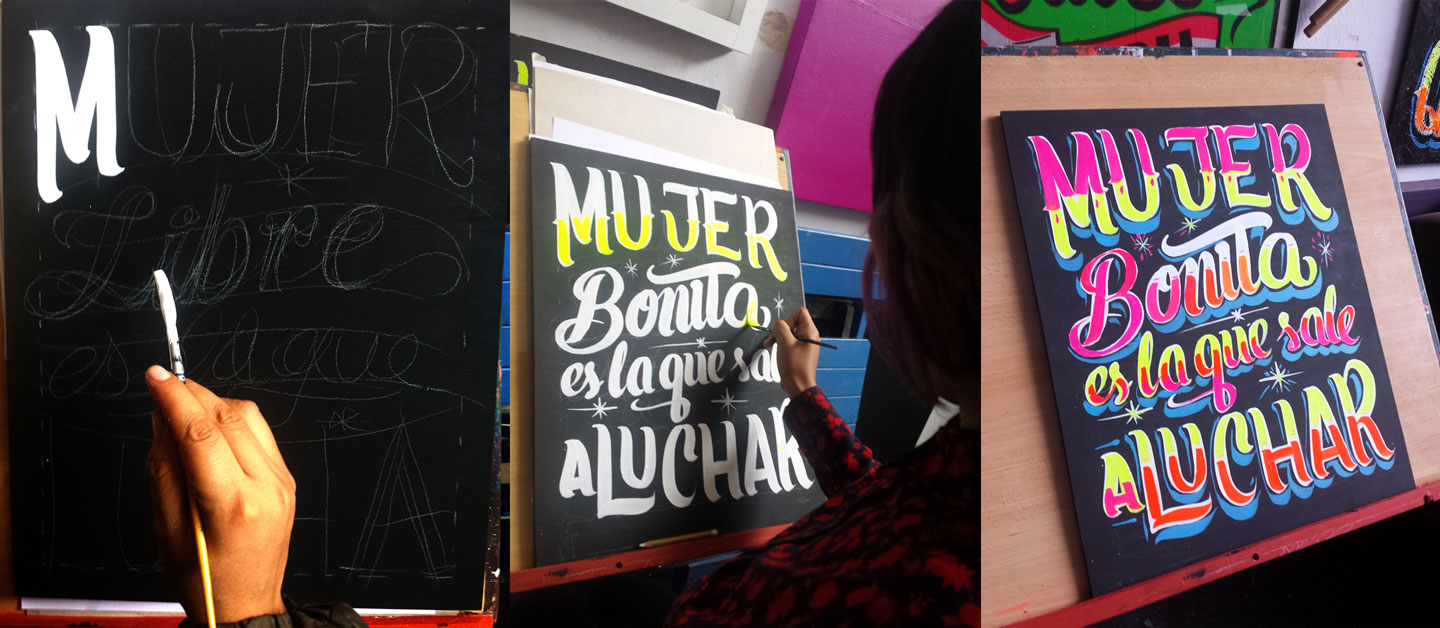 MUJER
Libre
es la que
LUCHA
MUJER
Bonita
es la que sale
A LUCHAR
MUJER
Bonita
es la que sale
A LUCHAR